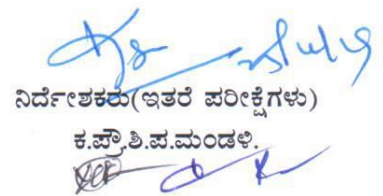 ನಿರ್ದೇಶಕರು(ಇತರೆ ಪರೀಕ್ಷೆಗಳು)
ಕ.ಪ್ರೌ.ಶಿ.ಪ.ಮಂಡಳಿ.